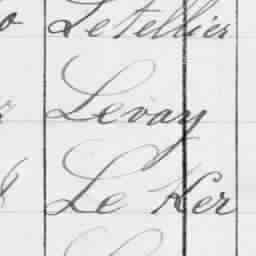 Letellier
Levay
Le Ker